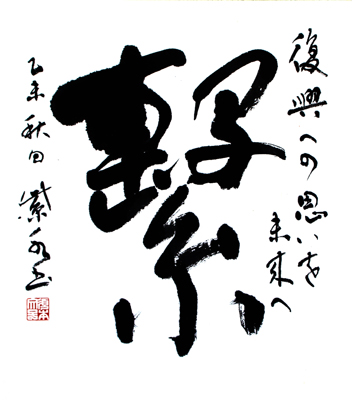 復興への思いを
未来へ
繋
乙未秋日 紫水书